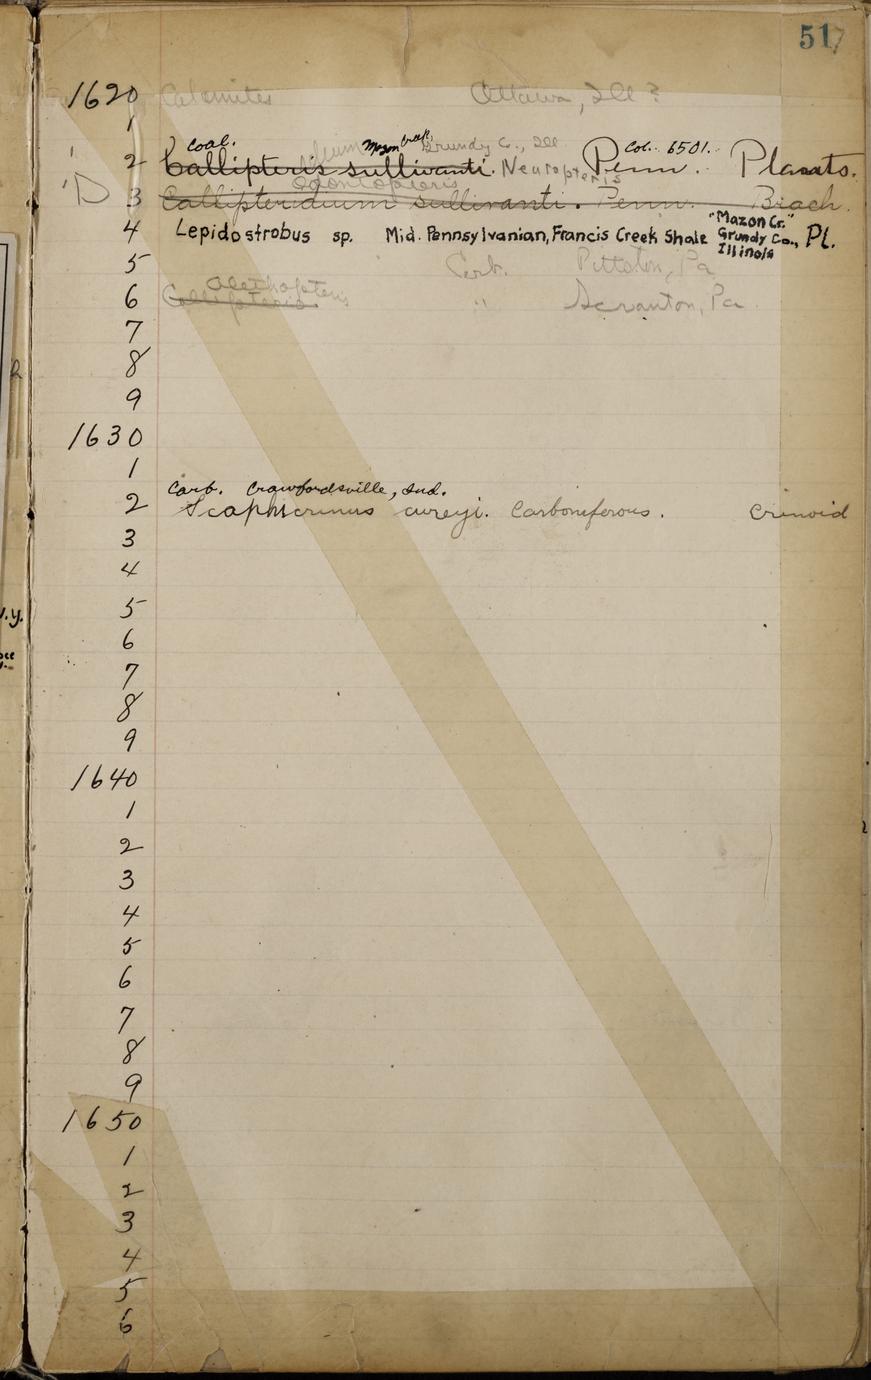 51
1620 Calamites Ottawa, Ill ?
1
Coal. Mazon Creek, Grundy Co., Ill Col. 6501.
2 Callipteris sullivanti. Neuropteris Penn. Plants.
Odontopteris
D 3 Callipteridium sullivanti. Penn. Brach.
4 Lepidostrobus sp. Mid. Pennsylvanian, Francis Creek Shale "Mazon Cr." Grundy Co., Illinois Pl.
5 Carb. Pittston, Pa
Alethopteris
6 Callipteris " Scranton, Pa
7
8
9
1630
1
Carb. Crawfordsville, Ind.
2 Scaphiocrinus cureyi. Carboniferous. Crinoid
3
4
5
6
7
8
9
1640
1
2
3
4
5
6
7
8
9
1650
1
2
3
4
5
6